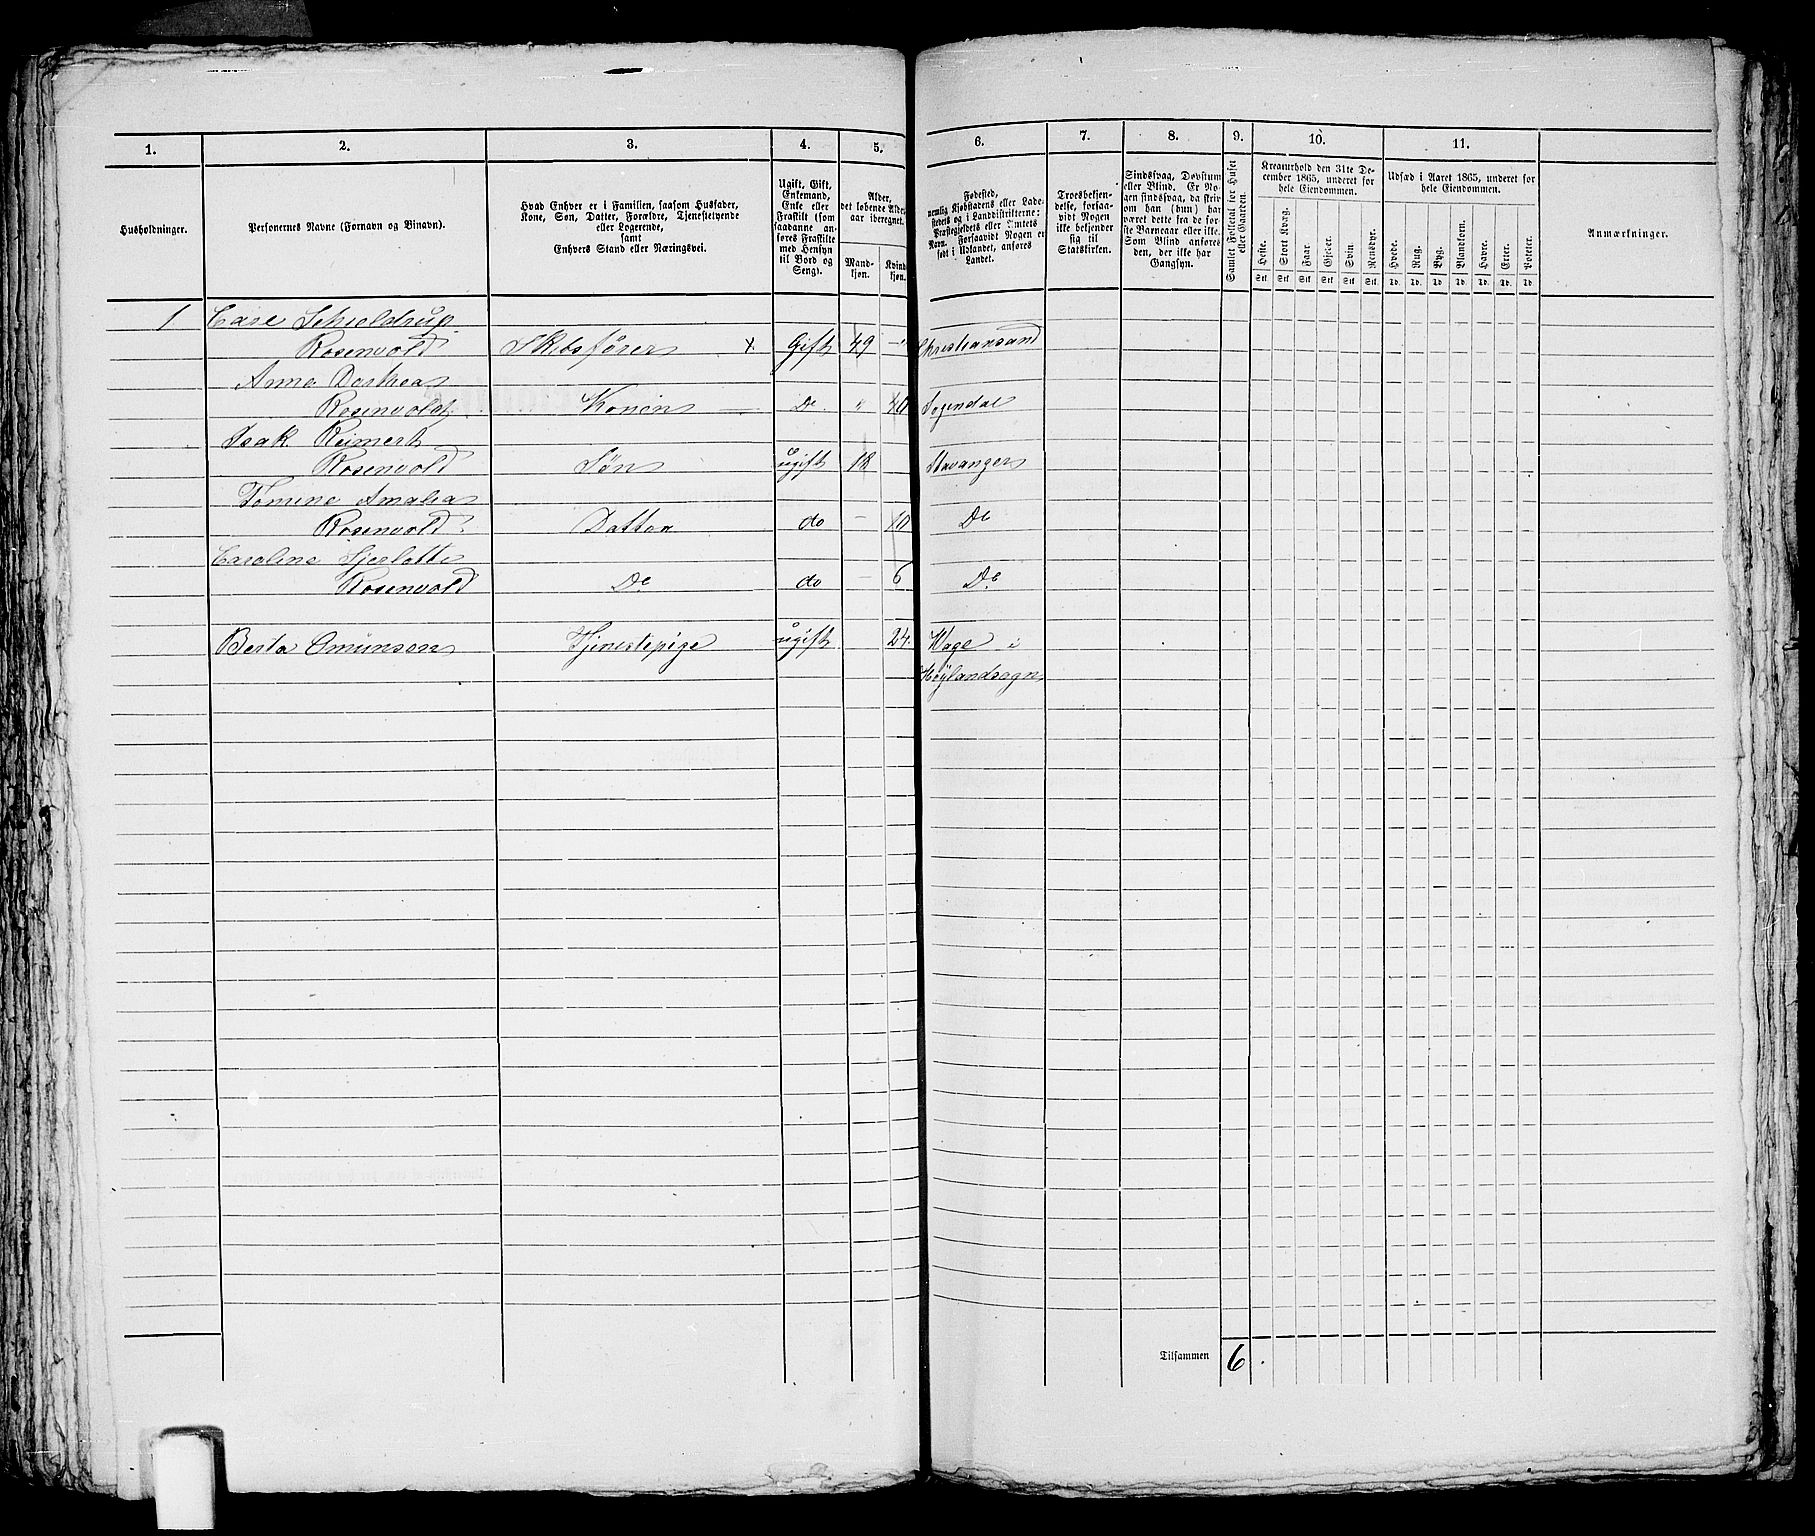 1. 2. 3. 4. 5. 6. 7. 8. 9. 10. 11.
Husholdninger.
Personernes Navne (Fornavn og Binavn).
Hvad Enhver er i Familien, saasom Husfader,
Kone, Søn, Datter, Forældre, Tjenstetyende
eller Logerende,
samt
Enhvers Stand eller Næringsvei.
Ugift, Gift,
Enkemand,
Enke eller
Fraskilt (som
saadanne an-
føres Fraskilte
med Hensyn
til Bord og
Seng).
Alder,
det løbende Alders-
aar iberegnet.
Mand-
kjøn.
Kvinde-
kjøn.
Fødested,
nemlig Kjøbstadens eller Lade-
stedets og i Landdistrikterne:
Præstegjeldets eller Amtets
Navn. Forsaavidt Nogen er
født i Udlandet, anføres
Landet.
Troesbekjen-
delse, forsaa-
vidt Nogen
ikke bekjender
sig til
Statskirken.
Sindssvag, Døvstum
eller Blind. Er No-
gen sindssvag, da skriv
om han (hun) har
været dette fra de før-
ste Barneaar eller ikke.
Som Blind anføres
den, der ikke har
Gangsyn.
Samlet Folketal for Huset
eller Gaarden.
Kreaturhold den 31te De-
cember 1865, underet for
hele Eiendommen.
Heste. Stort Kvæg. Faar. Gjeder. Svin. Rensdyr.
Stk Stk Stk Stk Stk Stk.
Udsæd i Aaret 1865, underet for
hele Eiendommen.
Hvede. Rug. Byg. Blandkorn. Havre. Erter. Poteter.
Td. Td. Td Td. Td. Td. Td
Anmærkninger.
1 Carl Schieldrup
Rosenvold Skibsfører X Gift 49 — Christiansand
Anne Dorthea
Rosenvold Konen — Do " 40 Sogendal
Isak Reimert
Rosenvold Søn ugift 12 Stavanger
Tomine Amalia
Rosenvold Datter do — 10 Do
Caroline Sjerlotte
Rosenvold Do do — 6 Do
Berta Omunsen Tjenestepige ugift 24. Hage i
Høylandsogn
Tilsammen 6